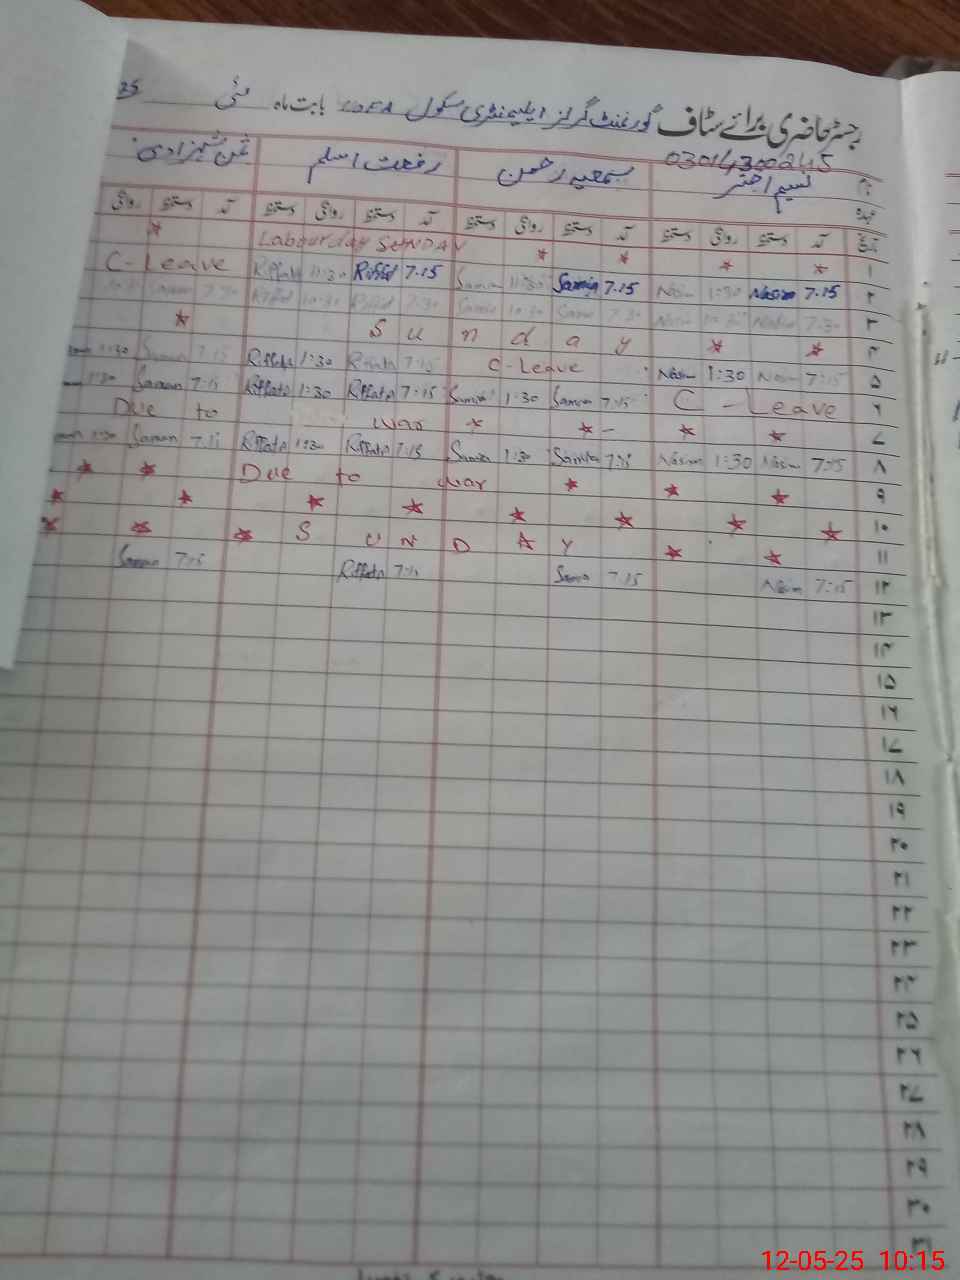 رجسٹر حاضری برائے سٹاف گورنمنٹ گرلز ایلیمنٹری سکول بابت ماہ مئی 25
03014300245
نام نسیم اختر سمعیہ رحمن رفعت اسلم ثمن شہزادی
عہدہ
تاریخ آمد دستخط روانگی دستخط آمد دستخط روانگی دستخط آمد دستخط روانگی دستخط آمد دستخط روانگی
۱ Labour day SUNDAY
۲ C-Leave Riffat 11:30 Riffat 7.15 Samia 11:30 Samia 7.15 Nasim 1:30 Nasim 7.15
۳ Saman 7:30 Riffat 10:30 Riffat 7:30 Samia 10:30 Samia 7.30 Nasim Nasim 7:30
۴ S u n d a y
۵ 1:30 Saman 7.15 Riffata 1:30 Riffata 7:15 C-Leave Nasim 1:30 Nasim 7:15
۶ 1:30 Saman 7:15 Riffata 1:30 Riffata 7:15 Samia 1:30 Samia 7:15 C-Leave
۷ Due to war
۸ 1:30 Saman 7:15 Riffata 1:30 Riffata 7:15 Samia 1:30 Samia 7:15 Nasim 1:30 Nasim 7:15
۹ Due to war
۱۰
۱۱ S U N D A Y
۱۲ Saman 7:15 Riffata 7:15 Samia 7.15 Nasim 7:15
۱۳
۱۴
۱۵
۱۶
۱۷
۱۸
۱۹
۲۰
۲۱
۲۲
۲۳
۲۴
۲۵
۲۶
۲۷
۲۸
۲۹
۳۰
۳۱
12-05-25 10:15